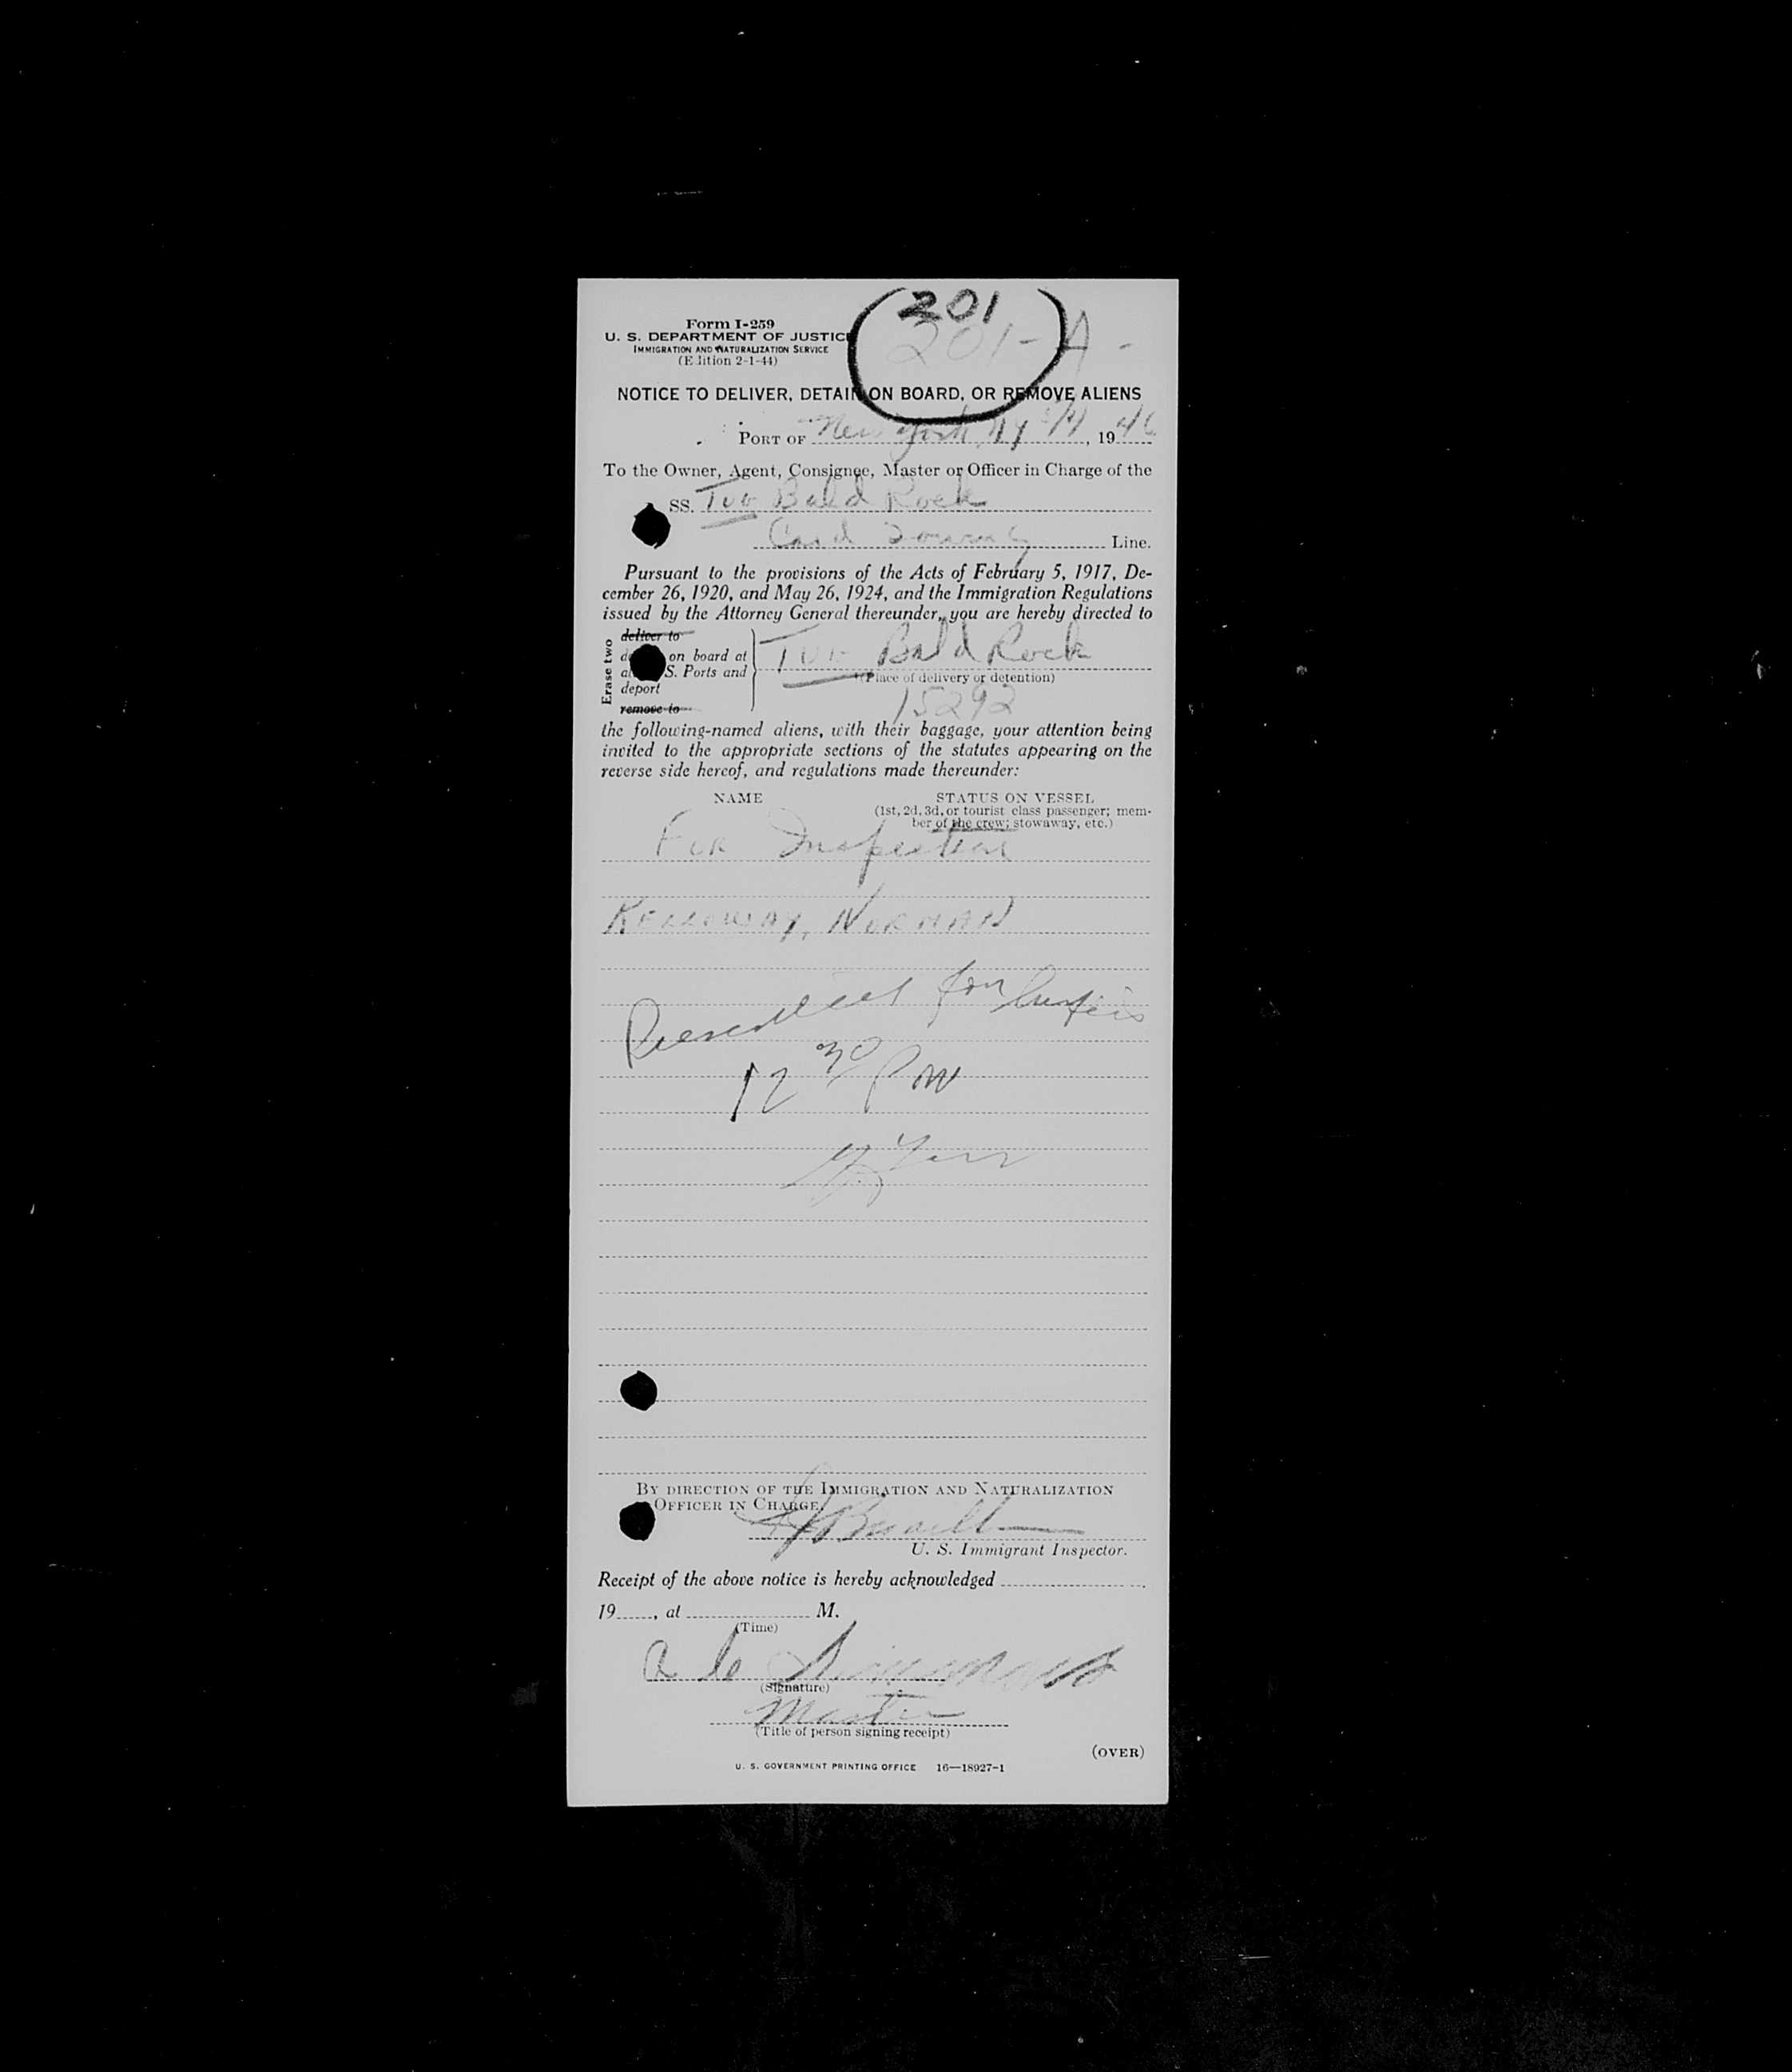 201
201-A-
Form I-259
U. S. DEPARTMENT OF JUSTICE
IMMIGRATION AND NATURALIZATION SERVICE
(Edition 2-1-44)
NOTICE TO DELIVER, DETAIN ON BOARD, OR REMOVE ALIENS
PORT OF New York, NY , 1946
To the Owner, Agent, Consignee, Master or Officer in Charge of the
SS. Tug Bald Rock
Line.
Pursuant to the provisions of the Acts of February 5, 1917, De-
cember 26, 1920, and May 26, 1924, and the Immigration Regulations
issued by the Attorney General thereunder, you are hereby directed to
Erase two
deliver to
on board at Tug Bald Rock
S. Ports and
(Place of delivery or detention)
deport
remove to
15292
the following-named aliens, with their baggage, your attention being
invited to the appropriate sections of the statutes appearing on the
reverse side hereof, and regulations made thereunder:
NAME STATUS ON VESSEL
(1st, 2d, 3d, or tourist class passenger; mem-
ber of the crew; stowaway, etc.)
For Inspection
KELLOWAY, NORMAN
for
12 30 PM
BY DIRECTION OF THE IMMIGRATION AND NATURALIZATION
OFFICER IN CHARGE.
U. S. Immigrant Inspector.
Receipt of the above notice is hereby acknowledged
19 , at M.
(Time)
Simmonds
(Signature)
Master
(Title of person signing receipt)
(OVER)
U. S. GOVERNMENT PRINTING OFFICE 16—18927-1